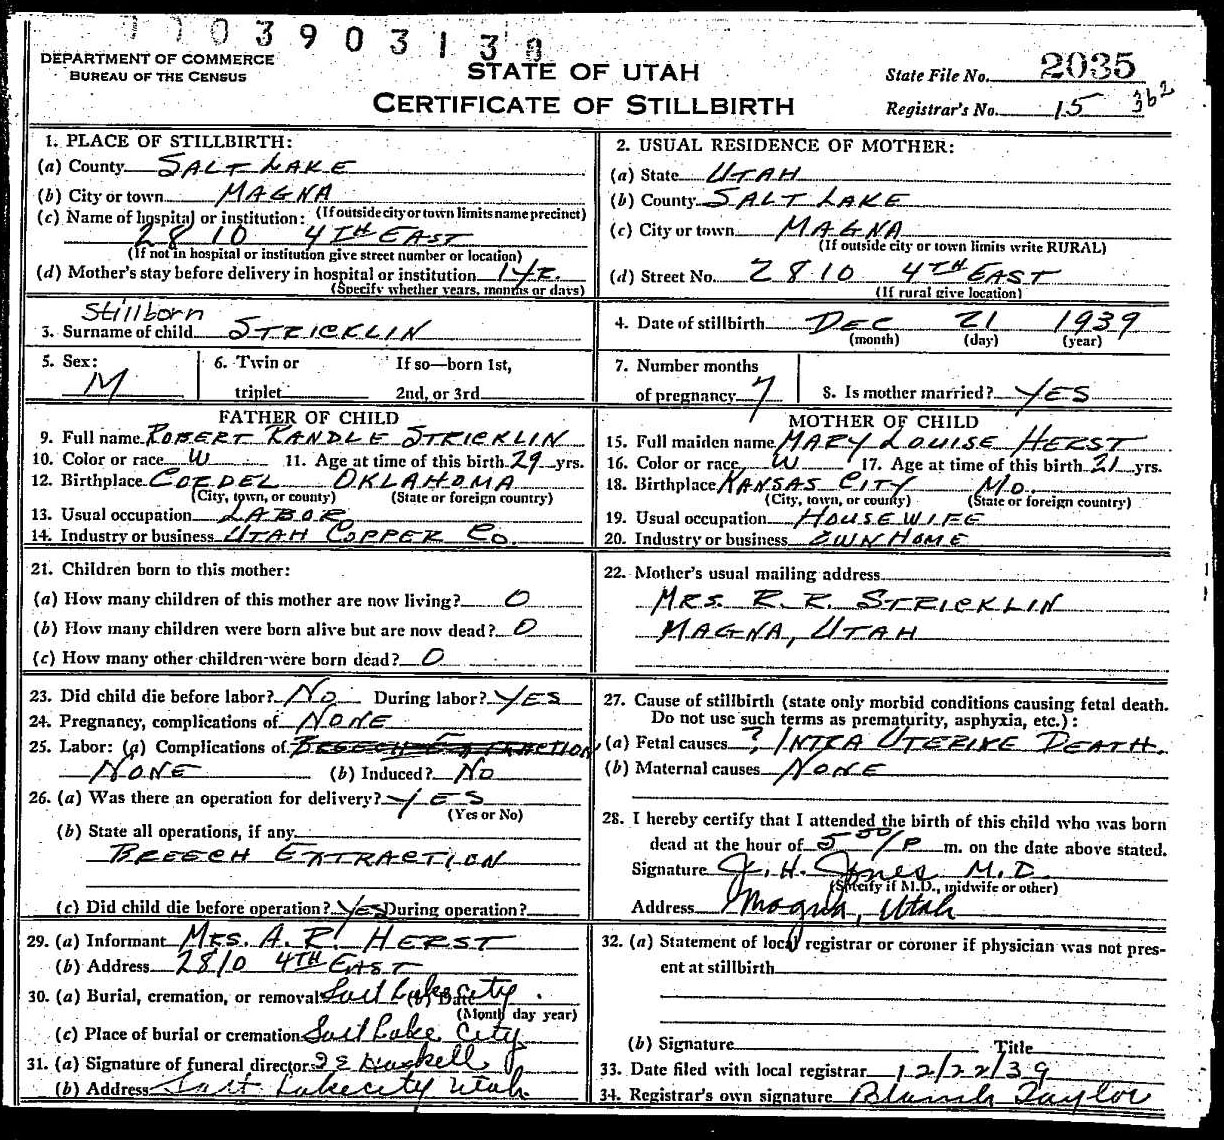 7703903138
DEPARTMENT OF COMMERCE
BUREAU OF THE CENSUS
STATE OF UTAH
CERTIFICATE OF STILLBIRTH
State File No. 2035
Registrar's No. 15 362
1. PLACE OF STILLBIRTH:
(a) County SALT LAKE
(b) City or town MAGNA
(c) Name of hospital or institution: (If outside city or town limits name precinct)
2810 4TH EAST
(If not in hospital or institution give street number or location)
(d) Mother's stay before delivery in hospital or institution 1 YR.
(Specify whether years, months or days)
2. USUAL RESIDENCE OF MOTHER:
(a) State UTAH
(b) County SALT LAKE
(c) City or town MAGNA
(If outside city or town limits write RURAL)
(d) Street No. 2810 4TH EAST
(If rural give location)
Stillborn
3. Surname of child STRICKLIN
4. Date of stillbirth DEC 21 1939
(month) (day) (year)
5. Sex: M
6. Twin or triplet
If so—born 1st, 2nd, or 3rd
7. Number months of pregnancy 7
8. Is mother married? YES
FATHER OF CHILD
9. Full name ROBERT RANDLE STRICKLIN
10. Color or race W 11. Age at time of this birth 29 yrs.
12. Birthplace CORDEL OKLAHOMA
(City, town, or county) (State or foreign country)
13. Usual occupation LABOR
14. Industry or business UTAH COPPER CO.
MOTHER OF CHILD
15. Full maiden name MARY LOUISE HERST
16. Color or race W 17. Age at time of this birth 21 yrs.
18. Birthplace KANSAS CITY MO.
(City, town, or county) (State or foreign country)
19. Usual occupation HOUSEWIFE
20. Industry or business OWN HOME
21. Children born to this mother:
(a) How many children of this mother are now living? 0
(b) How many children were born alive but are now dead? 0
(c) How many other children were born dead? 0
22. Mother's usual mailing address
MRS. R. R. STRICKLIN
MAGNA, UTAH
23. Did child die before labor? NO During labor? YES
24. Pregnancy, complications of NONE
25. Labor: (a) Complications of BREECH EXTRACTION
NONE (b) Induced? NO
26. (a) Was there an operation for delivery? YES
(Yes or No)
(b) State all operations, if any
BREECH EXTRACTION
(c) Did child die before operation? YES During operation?
27. Cause of stillbirth (state only morbid conditions causing fetal death.
Do not use such terms as prematurity, asphyxia, etc.):
(a) Fetal causes ? INTRA UTERINE DEATH.
(b) Maternal causes NONE
28. I hereby certify that I attended the birth of this child who was born
dead at the hour of 5 00/P m. on the date above stated.
Signature J. H. Jones M.D.
(Specify if M.D., midwife or other)
Address Magna, Utah
29. (a) Informant MRS. A. R. HERST
(b) Address 2810 4TH EAST
30. (a) Burial, cremation, or removal Salt Lake City (b) Date
(Month day year)
(c) Place of burial or cremation Salt Lake City
31. (a) Signature of funeral director
(b) Address Salt Lake City Utah
32. (a) Statement of local registrar or coroner if physician was not pres-
ent at stillbirth
(b) Signature Title
33. Date filed with local registrar 12/22/39
34. Registrar's own signature Blanch Taylor